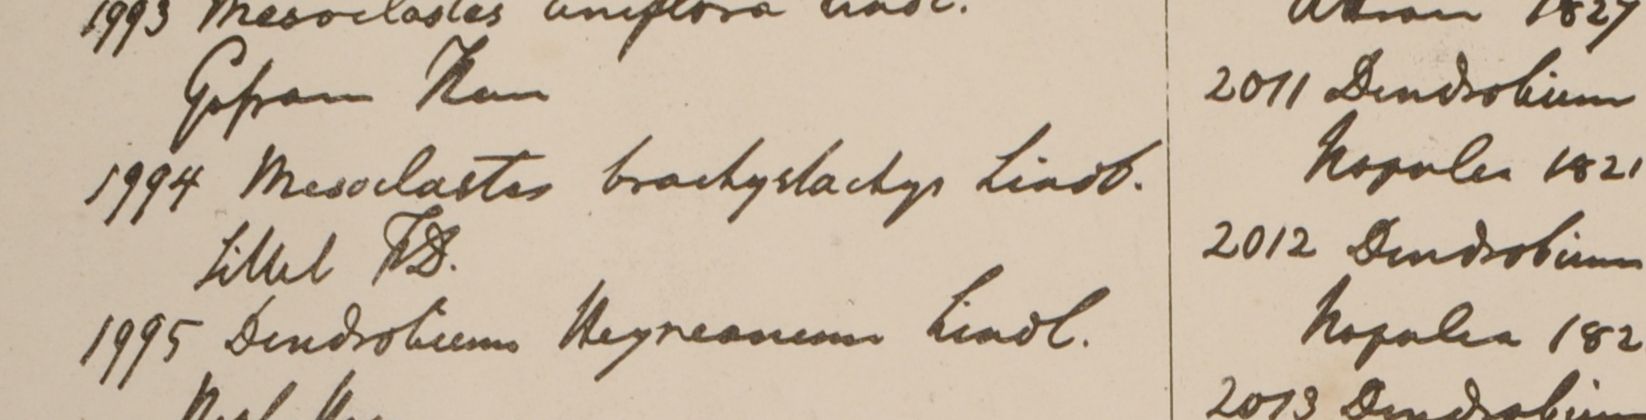 1993 Mesoclastes uniflora Lindl.
1994 Mesoclastes brachystachys Lindl.
Sillet F.D.
1995 Dendrobium Heyneanum Lindl.
1827
2011 Dendrobium
Napalea 1821
2012 Dendrobium
Napalea 182
2013 Dendrobium